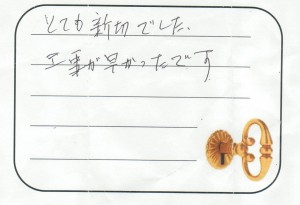 とても新切でした.
工事が早かったです